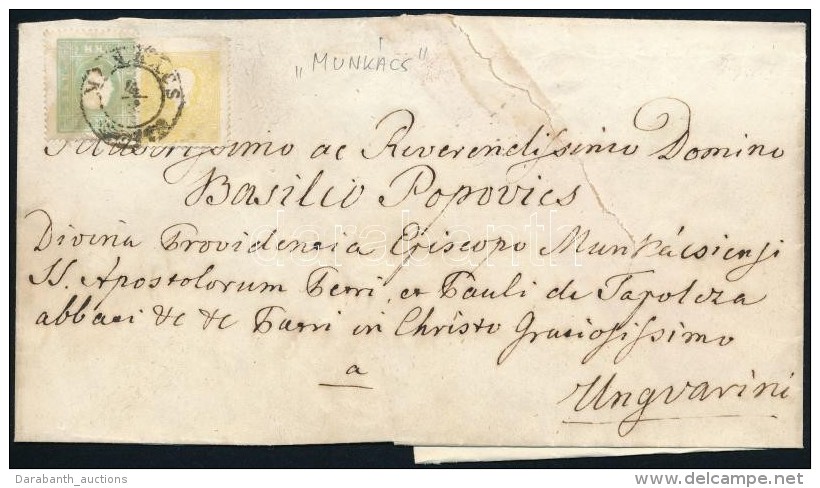 „MUNKÁCS"
Illustrissimo ac Reverendissimo Domino
Basilio Popovics
Divina Providencia Episcopo Munkácsiensi
SS. Apostolorum Petri, et Pauli de Tapolcza
abbati &c &c Patri in Christo Graciosissimo
a
Ungvarini
darabanth
Darabanth_auctions
delcampe.net